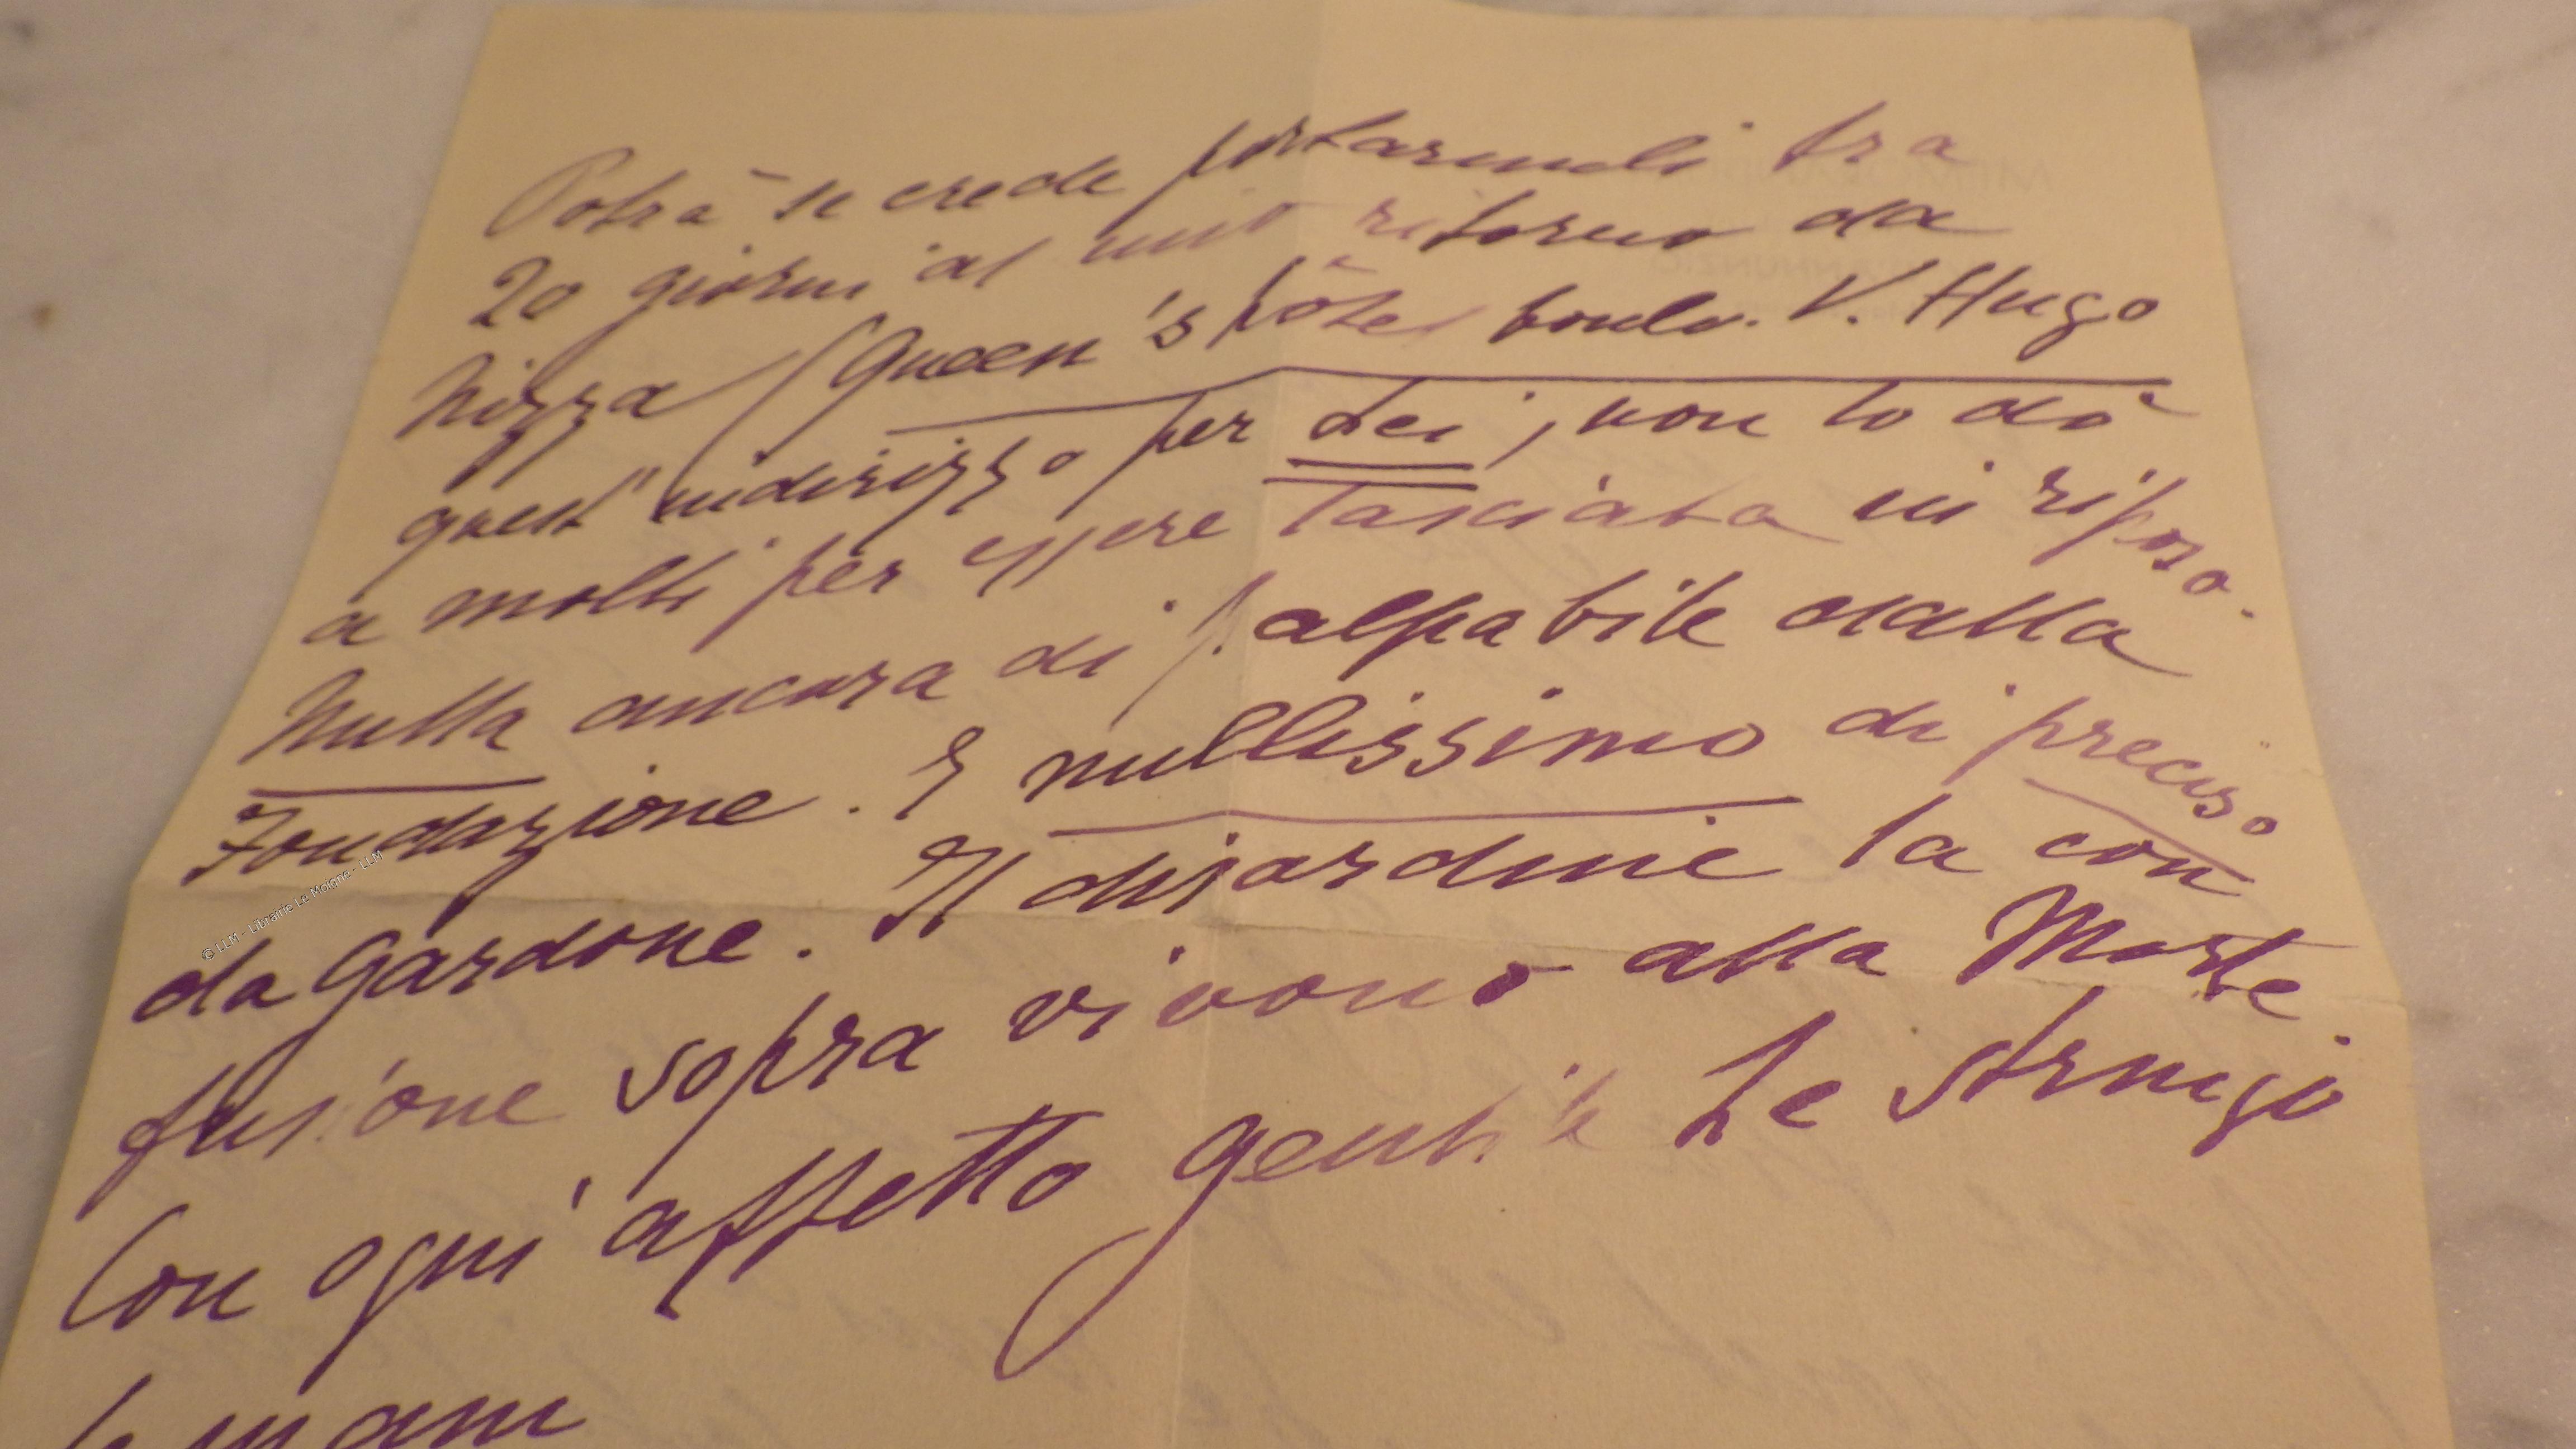 Potrà se crede portarmeli tra
20 giorni al mio ritorno da
Nizza (Queen's hôtel boulv. V. Hugo
quest'indirizzo per Lei, non lo dò
a molti per essere lasciata in riposo.
Nulla ancora di palpabile dalla
Fondazione. E nullissimo di preciso
da Gardone. Il disordine la con
fusione sopra vivono alla Morte.
Con ogni affetto gentile Le stringo
le mani
© LLM - Librairie Le Moigne - LLM